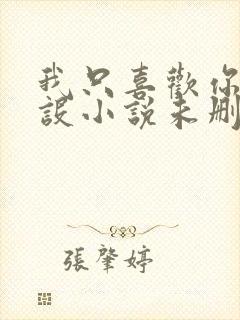 我只喜歡你
設小說未刪
張肇婷